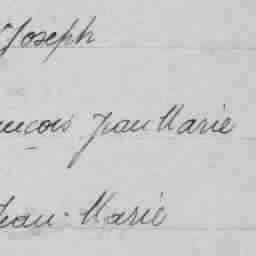 Joseph
ançois Jean Marie
Jean-Marie